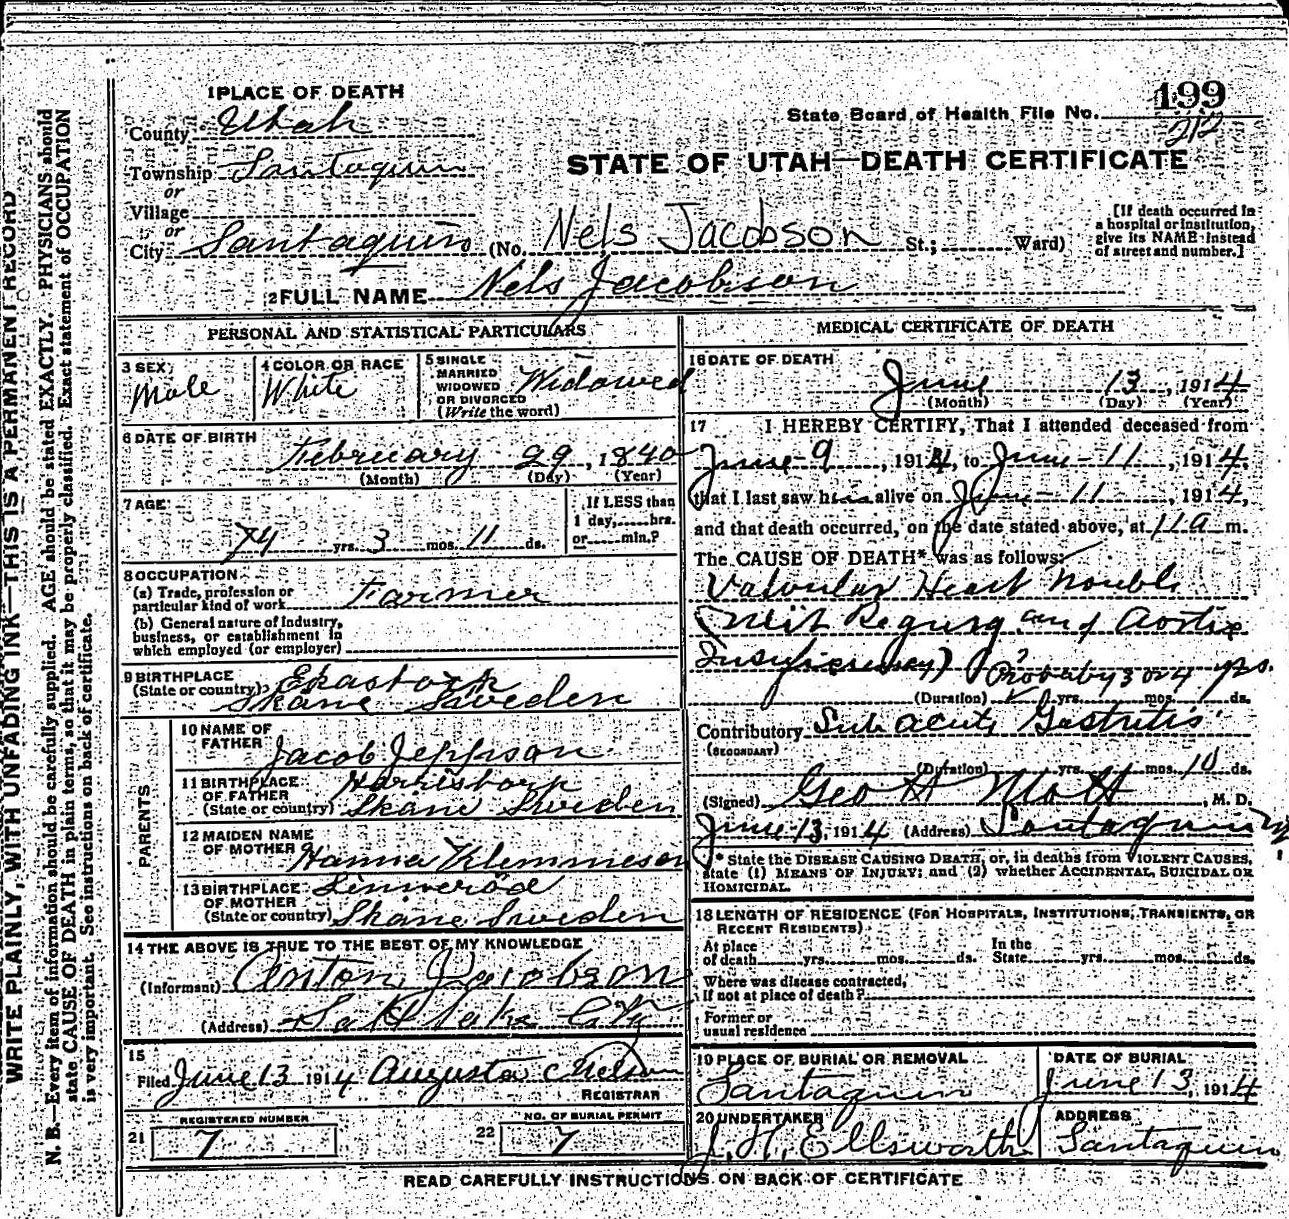 1 PLACE OF DEATH
County Utah
Township Santaquin
or
Village
or
City Santaquin (No. Nels Jacobson St.; Ward)
State Board of Health File No. 199
212
STATE OF UTAH—DEATH CERTIFICATE
[If death occurred in
a hospital or institution,
give its NAME instead
of street and number.]
2 FULL NAME Nels Jacobson
PERSONAL AND STATISTICAL PARTICULARS
3 SEX Male
4 COLOR OR RACE White
5 SINGLE
MARRIED
WIDOWED
OR DIVORCED
(Write the word) Widowed
6 DATE OF BIRTH
February 29, 1840
(Month) (Day) (Year)
7 AGE
74 yrs. 3 mos. 11 ds.
If LESS than
1 day, hrs.
or min.?
8 OCCUPATION
(a) Trade, profession or
particular kind of work Farmer
(b) General nature of industry,
business, or establishment in
which employed (or employer)
9 BIRTHPLACE
(State or country) Ekastorp
Skane Sweden
PARENTS
10 NAME OF
FATHER Jacob Jeppson
11 BIRTHPLACE
OF FATHER
(State or country) Skane Sweden
12 MAIDEN NAME
OF MOTHER Hanna Klemmeson
13 BIRTHPLACE
OF MOTHER
(State or country) Skane Sweden
14 THE ABOVE IS TRUE TO THE BEST OF MY KNOWLEDGE
(Informant) Anton Jacobson
(Address) Salt Lake City
15
Filed June 13 1914 Augusta Nelson
REGISTRAR
REGISTERED NUMBER
21 7
NO. OF BURIAL PERMIT
22 7
MEDICAL CERTIFICATE OF DEATH
16 DATE OF DEATH
June 13, 1914
(Month) (Day) (Year)
17 I HEREBY CERTIFY, That I attended deceased from
June 9, 1914, to June 11, 1914,
that I last saw him alive on June 11, 1914,
and that death occurred, on the date stated above, at 11 a m.
The CAUSE OF DEATH* was as follows:
Valvular Heart trouble
Regurg and Aortic
Insufficiency) Probably 3 or 4 yrs.
(Duration) yrs. mos. ds.
Contributory Sub acute Gastritis
(SECONDARY)
(Duration) yrs. mos. 10 ds.
(Signed) Geo H Mott, M. D.
June 13, 1914 (Address) Santaquin
* State the DISEASE CAUSING DEATH, or, in deaths from VIOLENT CAUSES,
state (1) MEANS OF INJURY; and (2) whether ACCIDENTAL, SUICIDAL OR
HOMICIDAL.
18 LENGTH OF RESIDENCE (FOR HOSPITALS, INSTITUTIONS, TRANSIENTS, OR
RECENT RESIDENTS)
At place
of death yrs. mos. ds.
In the
State yrs. mos. ds.
Where was disease contracted,
If not at place of death?
Former or
usual residence
19 PLACE OF BURIAL OR REMOVAL
Santaquin
DATE OF BURIAL
June 13, 1914
20 UNDERTAKER
J. H. Ellsworth
ADDRESS
Santaquin
READ CAREFULLY INSTRUCTIONS ON BACK OF CERTIFICATE
WRITE PLAINLY, WITH UNFADING INK—THIS IS A PERMANENT RECORD
N. B.—Every item of information should be carefully supplied. AGE should be stated EXACTLY. PHYSICIANS should
state CAUSE OF DEATH in plain terms, so that it may be properly classified. Exact statement of OCCUPATION
is very important. See instructions on back of certificate.